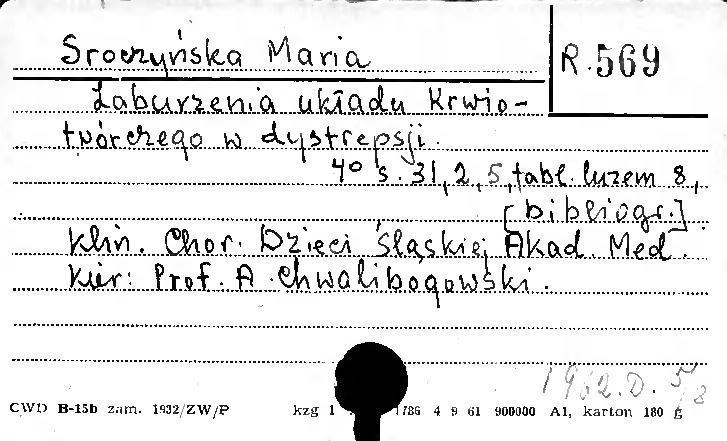 Sroczyńska Maria
R. 569
Zaburzenia układu krwio-
twórczego w dystrepsji.
4° s. 31, 2, 5, tabl. luzem 8,
[bibliogr.]
Klin. Chor. Dzieci Śląskiej Akad. Med.
Kier: Prof. A. Chwalibogowski.
1962.D. 5/8
CWD B-15b zam. 1932/ZW/P kzg 1 1786 4 9 61 900000 A1, karton 180 g